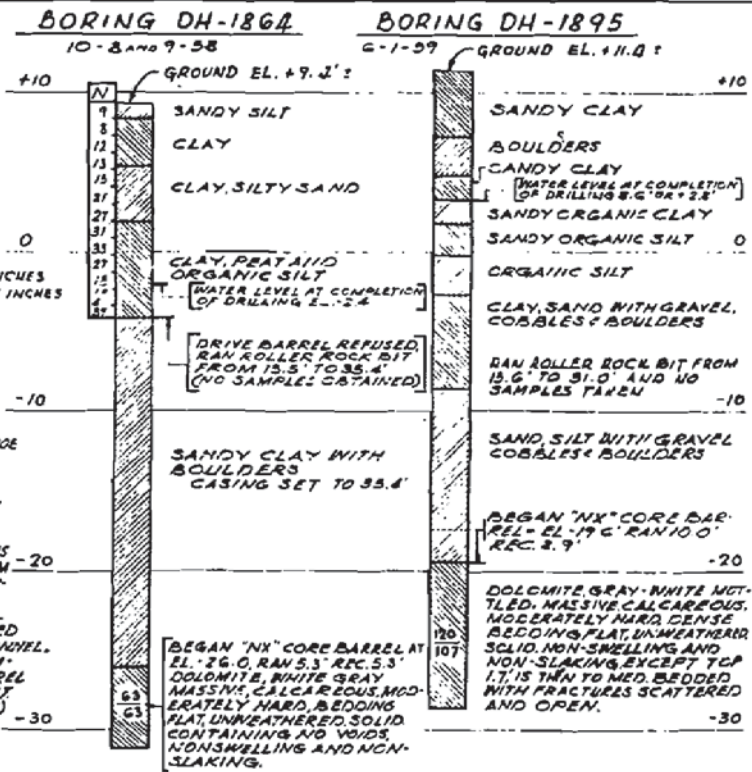 BORING DH-1864
10-8 AND 9-58
GROUND EL. +9.4'±
+10
N
9
8
12
13
15
21
27
31
33
27
SANDY SILT
CLAY
CLAY, SILTY SAND
0
CLAY, PEAT AND
ORGANIC SILT
[WATER LEVEL AT COMPLETION
OF DRILLING EL. -2.4]
INCHES
INCHES
[DRIVE BARREL REFUSED,
RAN ROLLER ROCK BIT
FROM 13.5' TO 35.4'
(NO SAMPLES OBTAINED)]
-10
SANDY CLAY WITH
BOULDERS
CASING SET TO 35.4'
-20
BEGAN "NX" CORE BARREL AT
EL. -26.0, RAN 5.3' REC. 5.3'
DOLOMITE, WHITE GRAY
MASSIVE, CALCAREOUS, MOD-
ERATELY HARD, BEDDING
FLAT, UNWEATHERED, SOLID
CONTAINING NO VOIDS,
NONSWELLING AND NON-
SLAKING.
63
63
-30
BORING DH-1895
6-1-59
GROUND EL. +11.4±
+10
SANDY CLAY
BOULDERS
SANDY CLAY
[WATER LEVEL AT COMPLETION
OF DRILLING 8.6' OR +2.8']
SANDY ORGANIC CLAY
SANDY ORGANIC SILT
0
ORGANIC SILT
CLAY, SAND WITH GRAVEL,
COBBLES & BOULDERS
RAN ROLLER ROCK BIT FROM
15.6' TO 31.0' AND NO
SAMPLES TAKEN
-10
SAND, SILT WITH GRAVEL
COBBLES & BOULDERS
BEGAN "NX" CORE BAR-
REL - EL -19.6' RAN 10.0'
REC. 8.9'
-20
DOLOMITE, GRAY-WHITE MOT-
TLED, MASSIVE, CALCAREOUS,
MODERATELY HARD, DENSE
BEDDING FLAT, UNWEATHERED,
SOLID, NON-SWELLING AND
NON-SLAKING, EXCEPT TOP
1.7' IS THIN TO MED. BEDDED
WITH FRACTURES SCATTERED
AND OPEN.
120
107
-30